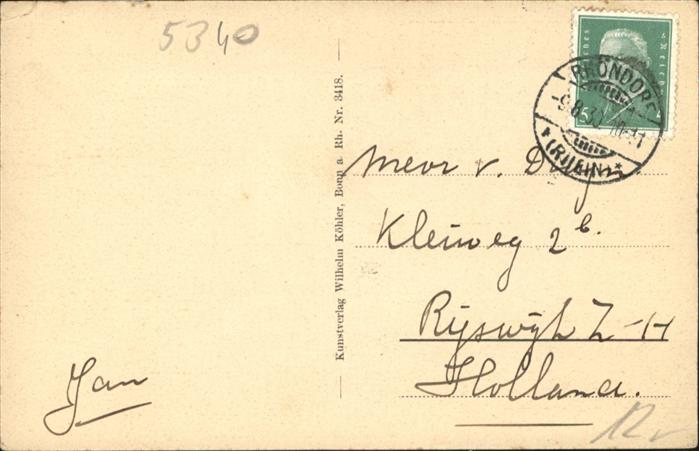 5340
Kunstverlag Wilhelm Köhler, Bonn a. Rh. Nr. 3418.
RHÖNDORF
(RHEIN)
Mevr v.
Kleiweg 2b.
Rijswijk Z-H
Holland.
Jan